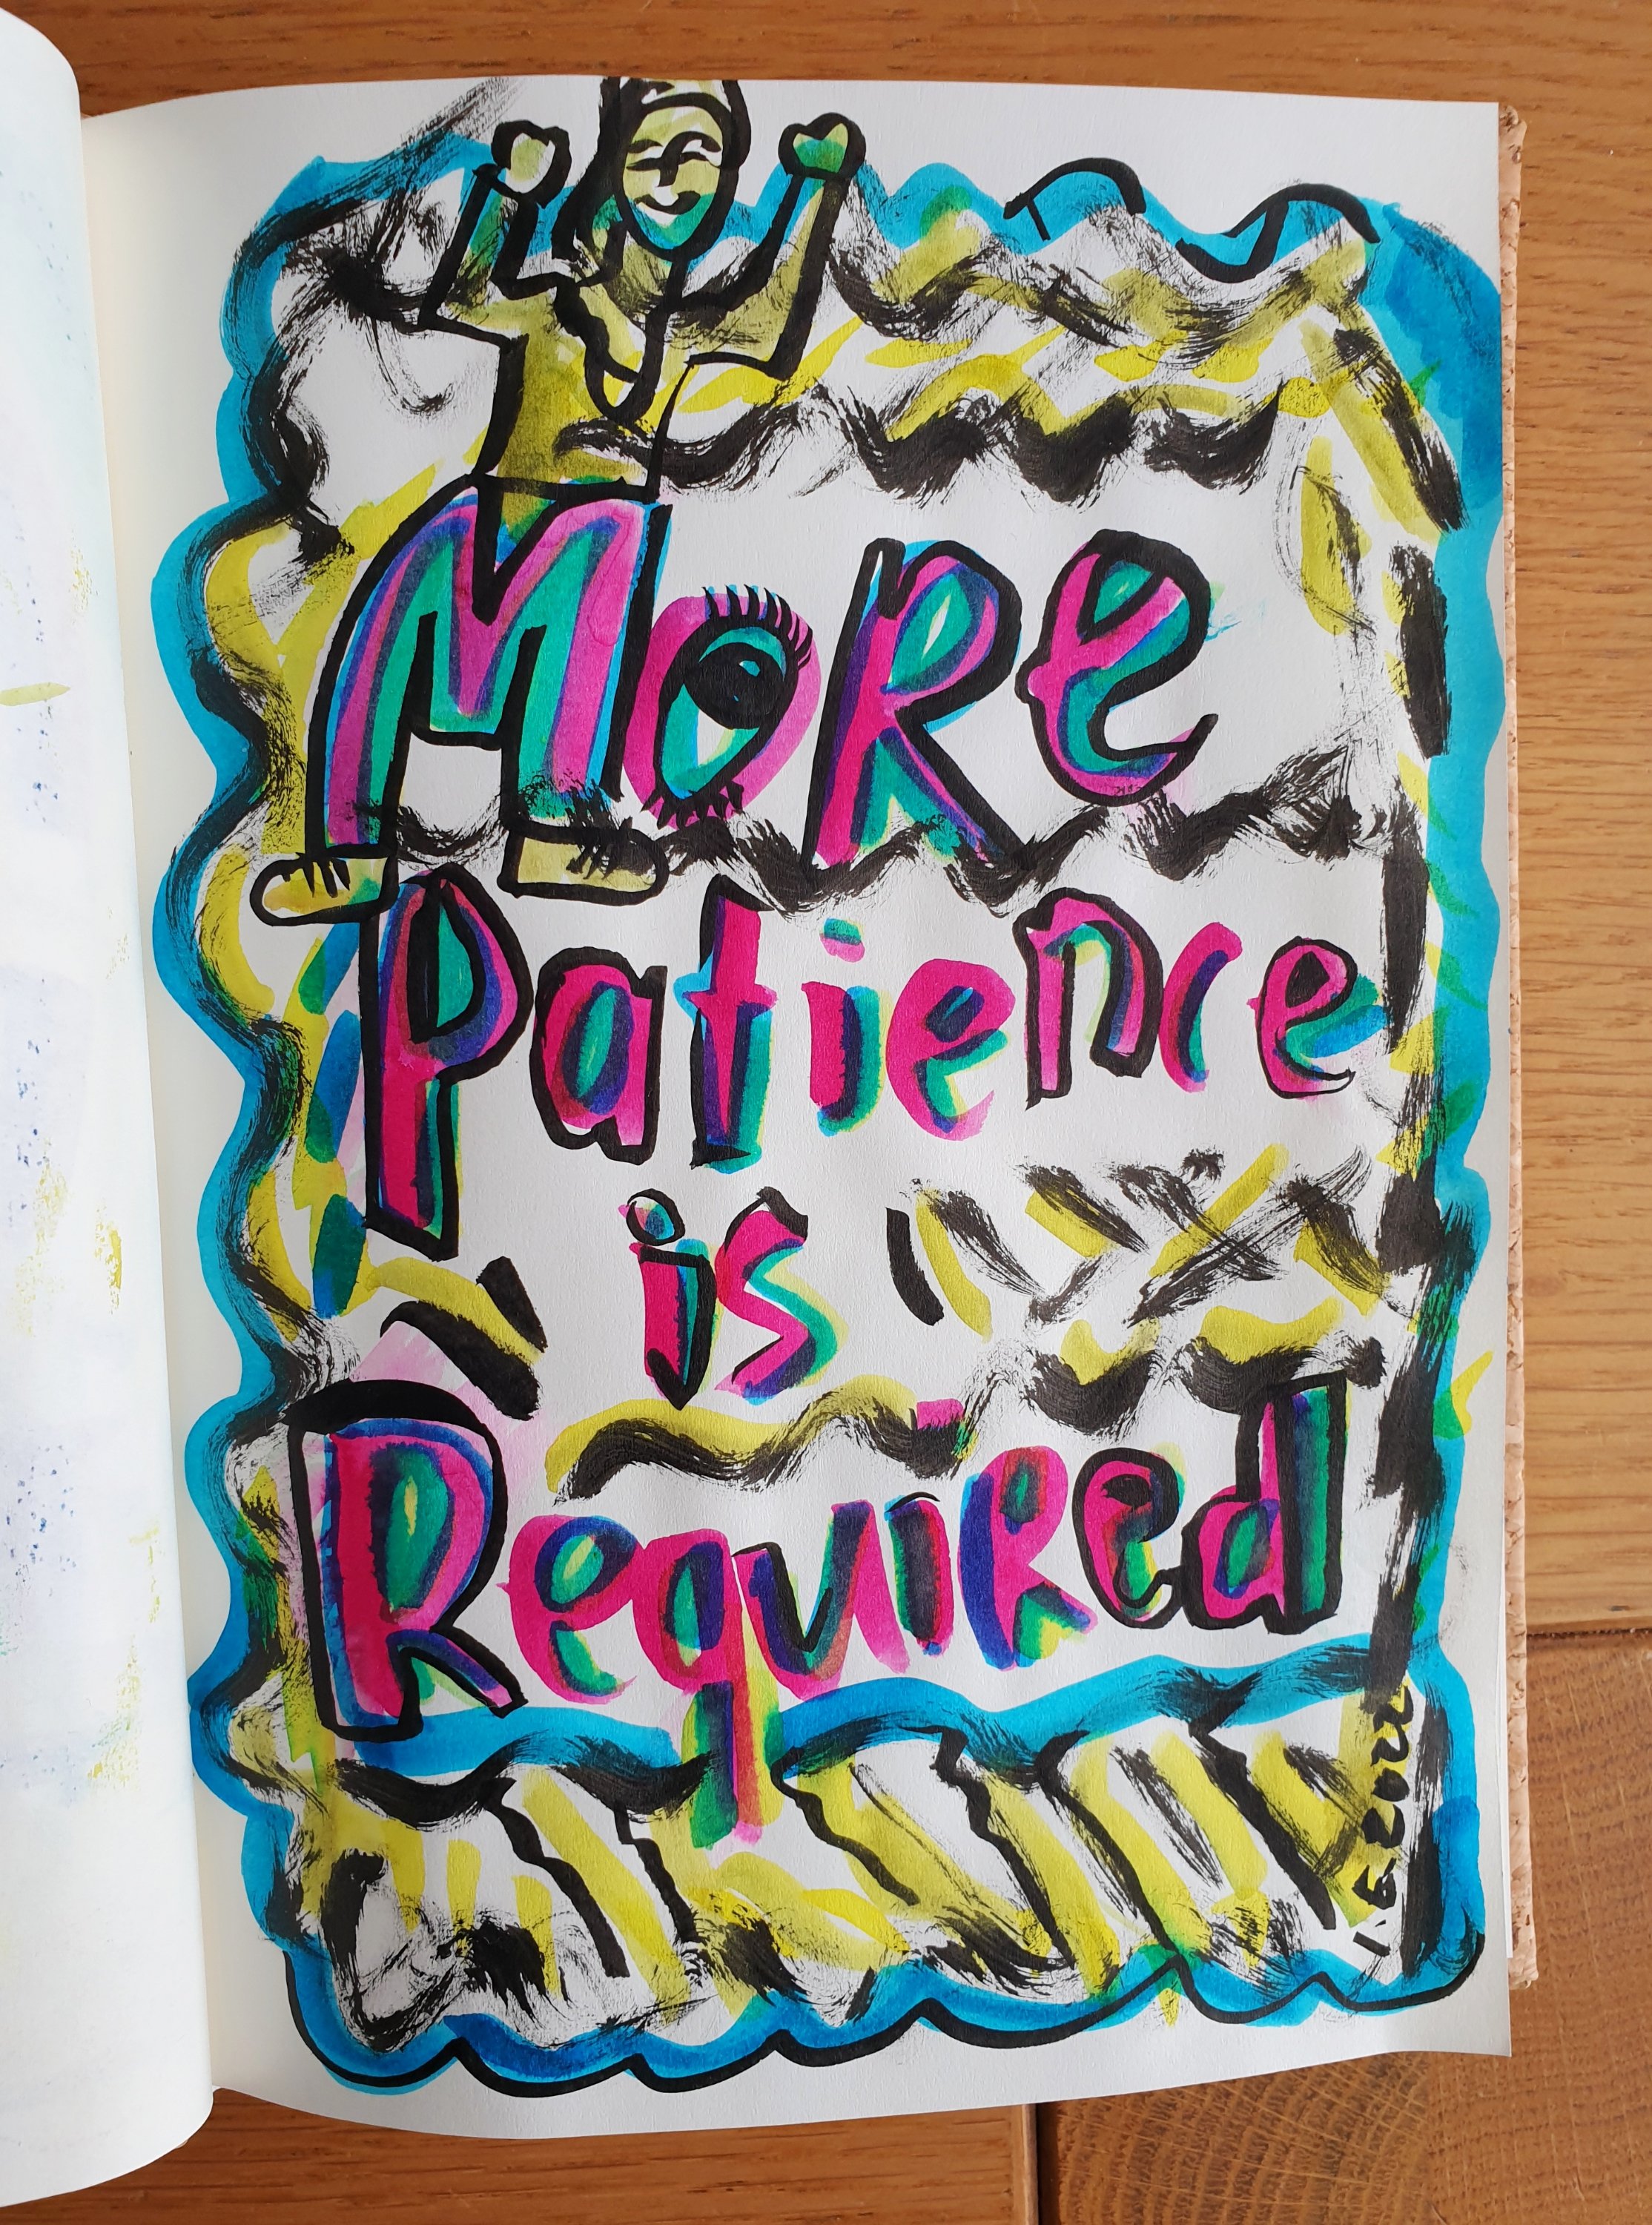 MORe
Patience
is
RequiRed
1.6.2022